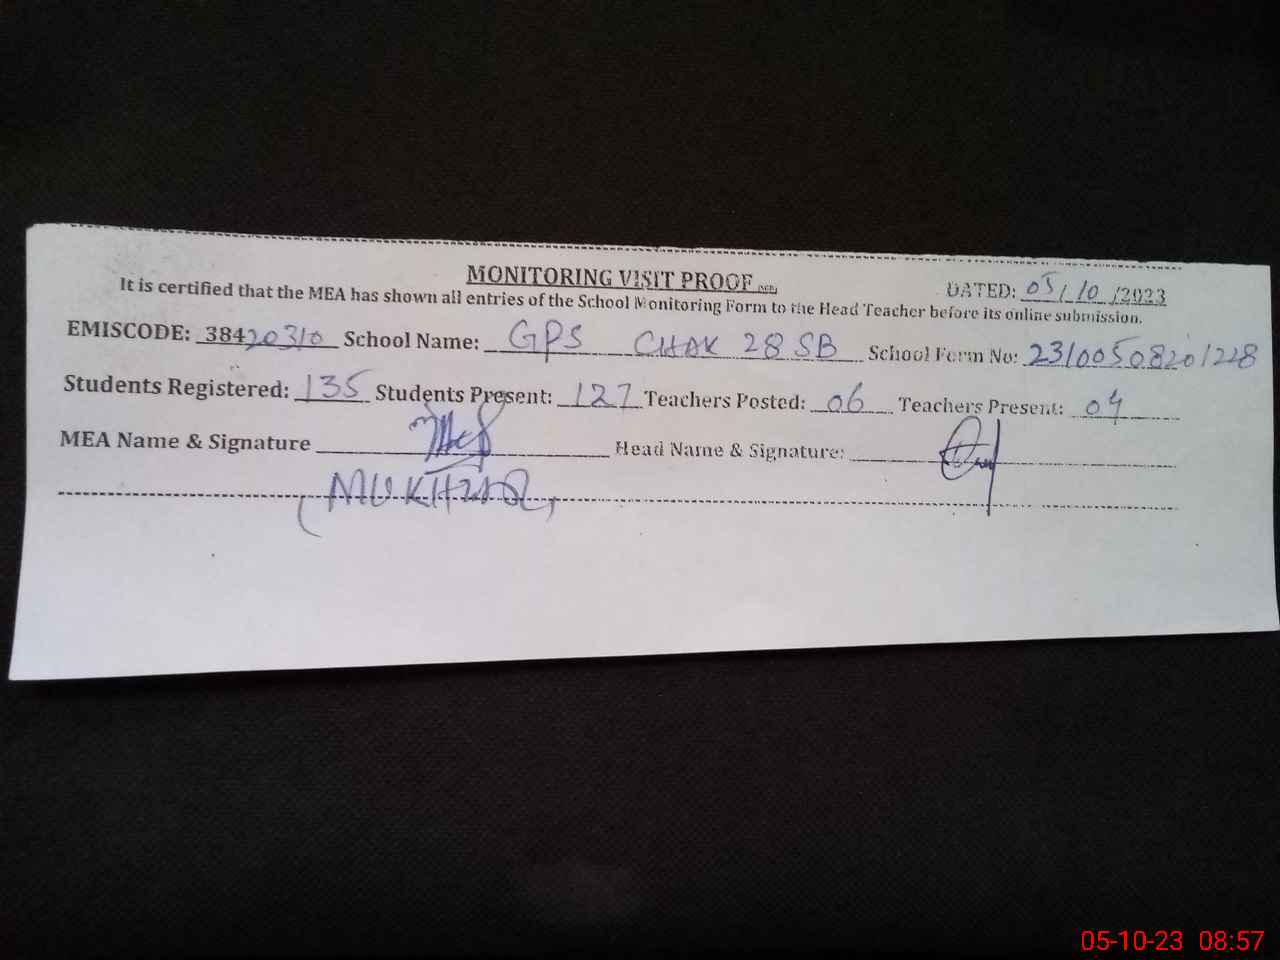 MONITORING VISIT PROOF
DATED: 05/10/2023
It is certified that the MEA has shown all entries of the School Monitoring Form to the Head Teacher before its online submission.
EMISCODE: 38420310 School Name: GPS CHAK 28 SB School Form No: 23100508201228
Students Registered: 135 Students Present: 127 Teachers Posted: 06 Teachers Present: 04
MEA Name & Signature Head Name & Signature:
(MUKHTAR)
05-10-23 08:57